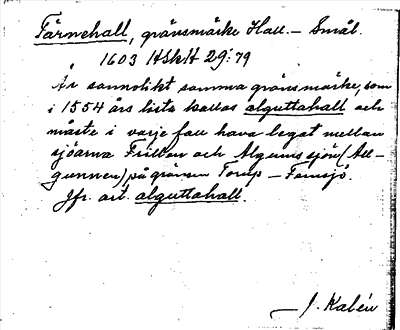 Tärnehall, gränsmärke Hall. – Smål.
1603 HSkH 29:79
Är sannolikt samma gränsmärke, som
i 1554 års lista kallas alguttahall och
måste i varje fall hava legat mellan
sjöarna Frillen och Algunssjön (All-
gunnen) på gränsen Torup – Femsjö.
Jfr. art. alguttahall.
J. Kalén